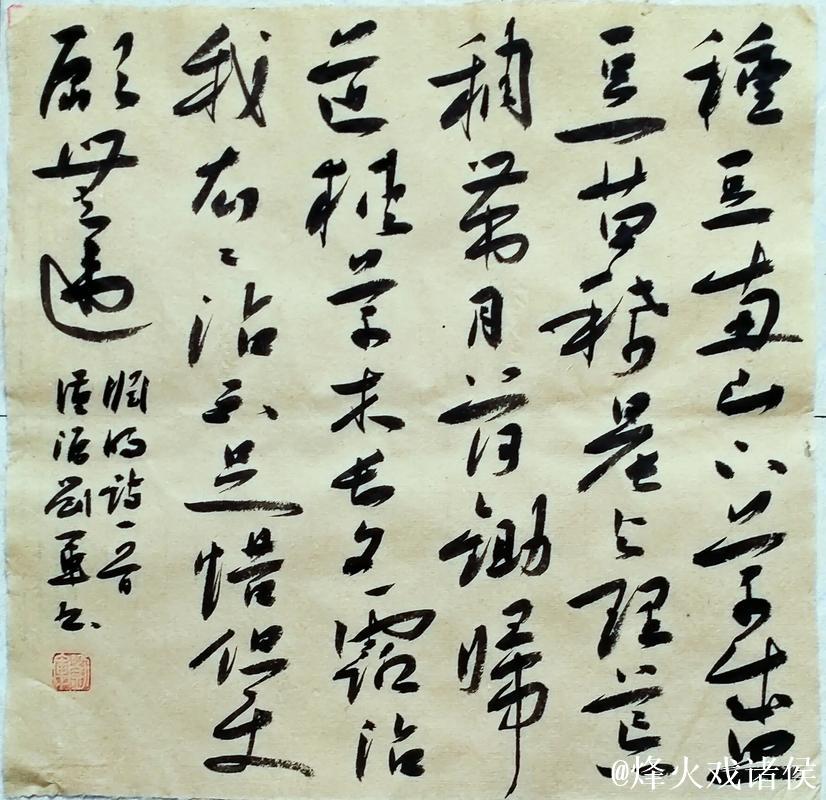 種豆南山下草盛
豆苗稀晨興理荒
穢帶月荷鋤歸
道狹草木長夕露沾
我衣〻沾不足惜但使
願無違
淵明詩一首
劉軍书
@烽火戏诸侯